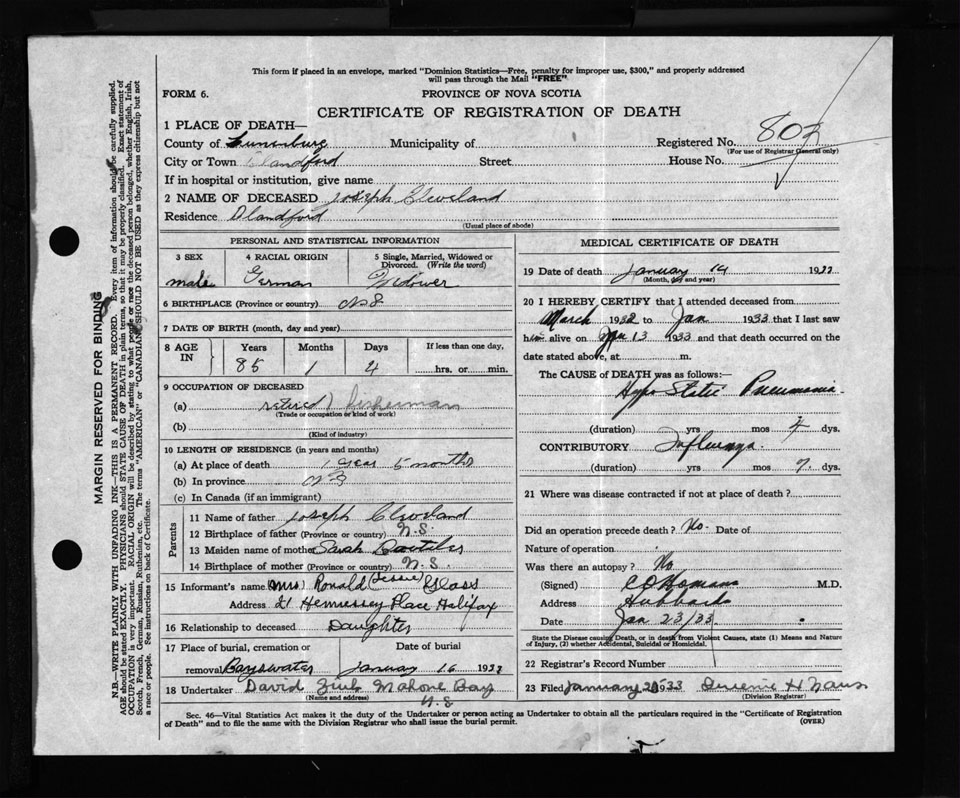 This form if placed in an envelope, marked "Dominion Statistics—Free, penalty for improper use, $300," and properly addressed
will pass through the Mail "FREE"
FORM 6.
PROVINCE OF NOVA SCOTIA
CERTIFICATE OF REGISTRATION OF DEATH
1 PLACE OF DEATH—
County of Lunenburg Municipality of Registered No. 803
(For use of Registrar General only)
City or Town Blandford Street House No.
If in hospital or institution, give name
2 NAME OF DECEASED Joseph Cleveland
Residence Blandford
(Usual place of abode)
PERSONAL AND STATISTICAL INFORMATION
3 SEX 4 RACIAL ORIGIN 5 Single, Married, Widowed or
Divorced. (Write the word)
male German Widower
6 BIRTHPLACE (Province or country) N S
7 DATE OF BIRTH (month, day and year)
8 AGE IN Years Months Days If less than one day,
85 1 4 hrs. or min.
9 OCCUPATION OF DECEASED
(a) retired) fisherman
(Trade or occupation or kind of work)
(b)
(Kind of industry)
10 LENGTH OF RESIDENCE (in years and months)
(a) At place of death 1 year 5 months
(b) In province N S
(c) In Canada (if an immigrant)
Parents
11 Name of father Joseph Cleveland
12 Birthplace of father (Province or country) N.S.
13 Maiden name of mother Sarah
14 Birthplace of mother (Province or country) N.S.
15 Informant's name Mrs Ronald (Jessie)
Address 21 Hennessey Place Halifax
16 Relationship to deceased Daughter
17 Place of burial, cremation or Date of burial
removal Bayswater January 16 193
18 Undertaker David Mahone Bay
(Name and address)
N S
MEDICAL CERTIFICATE OF DEATH
19 Date of death January 14 193
(Month, day and year)
20 I HEREBY CERTIFY that I attended deceased from
March 1932 to Jan 1933 that I last saw
him alive on Jan 13 1933 and that death occurred on the
date stated above, at m.
The CAUSE of DEATH was as follows:
Hypo Static Pneumonia
(duration) yrs mos dys.
CONTRIBUTORY Influenza
(duration) yrs mos 7 dys.
21 Where was disease contracted if not at place of death?
Did an operation precede death? No. Date of
Nature of operation
Was there an autopsy? No
(Signed) M.D.
Address Hubbards
Date Jan 23/33
State the Disease causing Death, or in death from Violent Causes, state (1) Means and Nature
of Injury, (2) whether Accidental, Suicidal or Homicidal.
22 Registrar's Record Number
23 Filed January
(Division Registrar)
Sec. 46—Vital Statistics Act makes it the duty of the Undertaker or person acting as Undertaker to obtain all the particulars required in the "Certificate of Registration
of Death" and to file the same with the Division Registrar who shall issue the burial permit.
(OVER)
MARGIN RESERVED FOR BINDING
N.B.—WRITE PLAINLY WITH UNFADING INK—THIS IS A PERMANENT RECORD. Every item of information should be carefully supplied.
AGE should be stated EXACTLY. PHYSICIANS should STATE CAUSE OF DEATH in plain terms, so that it may be properly classified. Exact statement of
OCCUPATION is very important. RACIAL ORIGIN will be described by stating to what people or race the deceased person belonged, whether English, Irish,
Scotch, French, German, Russian, Ruthenian, etc. The terms "AMERICAN" or "CANADIAN" SHOULD NOT BE USED as they express citizenship but not
a race or people. See instructions on back of Certificate.